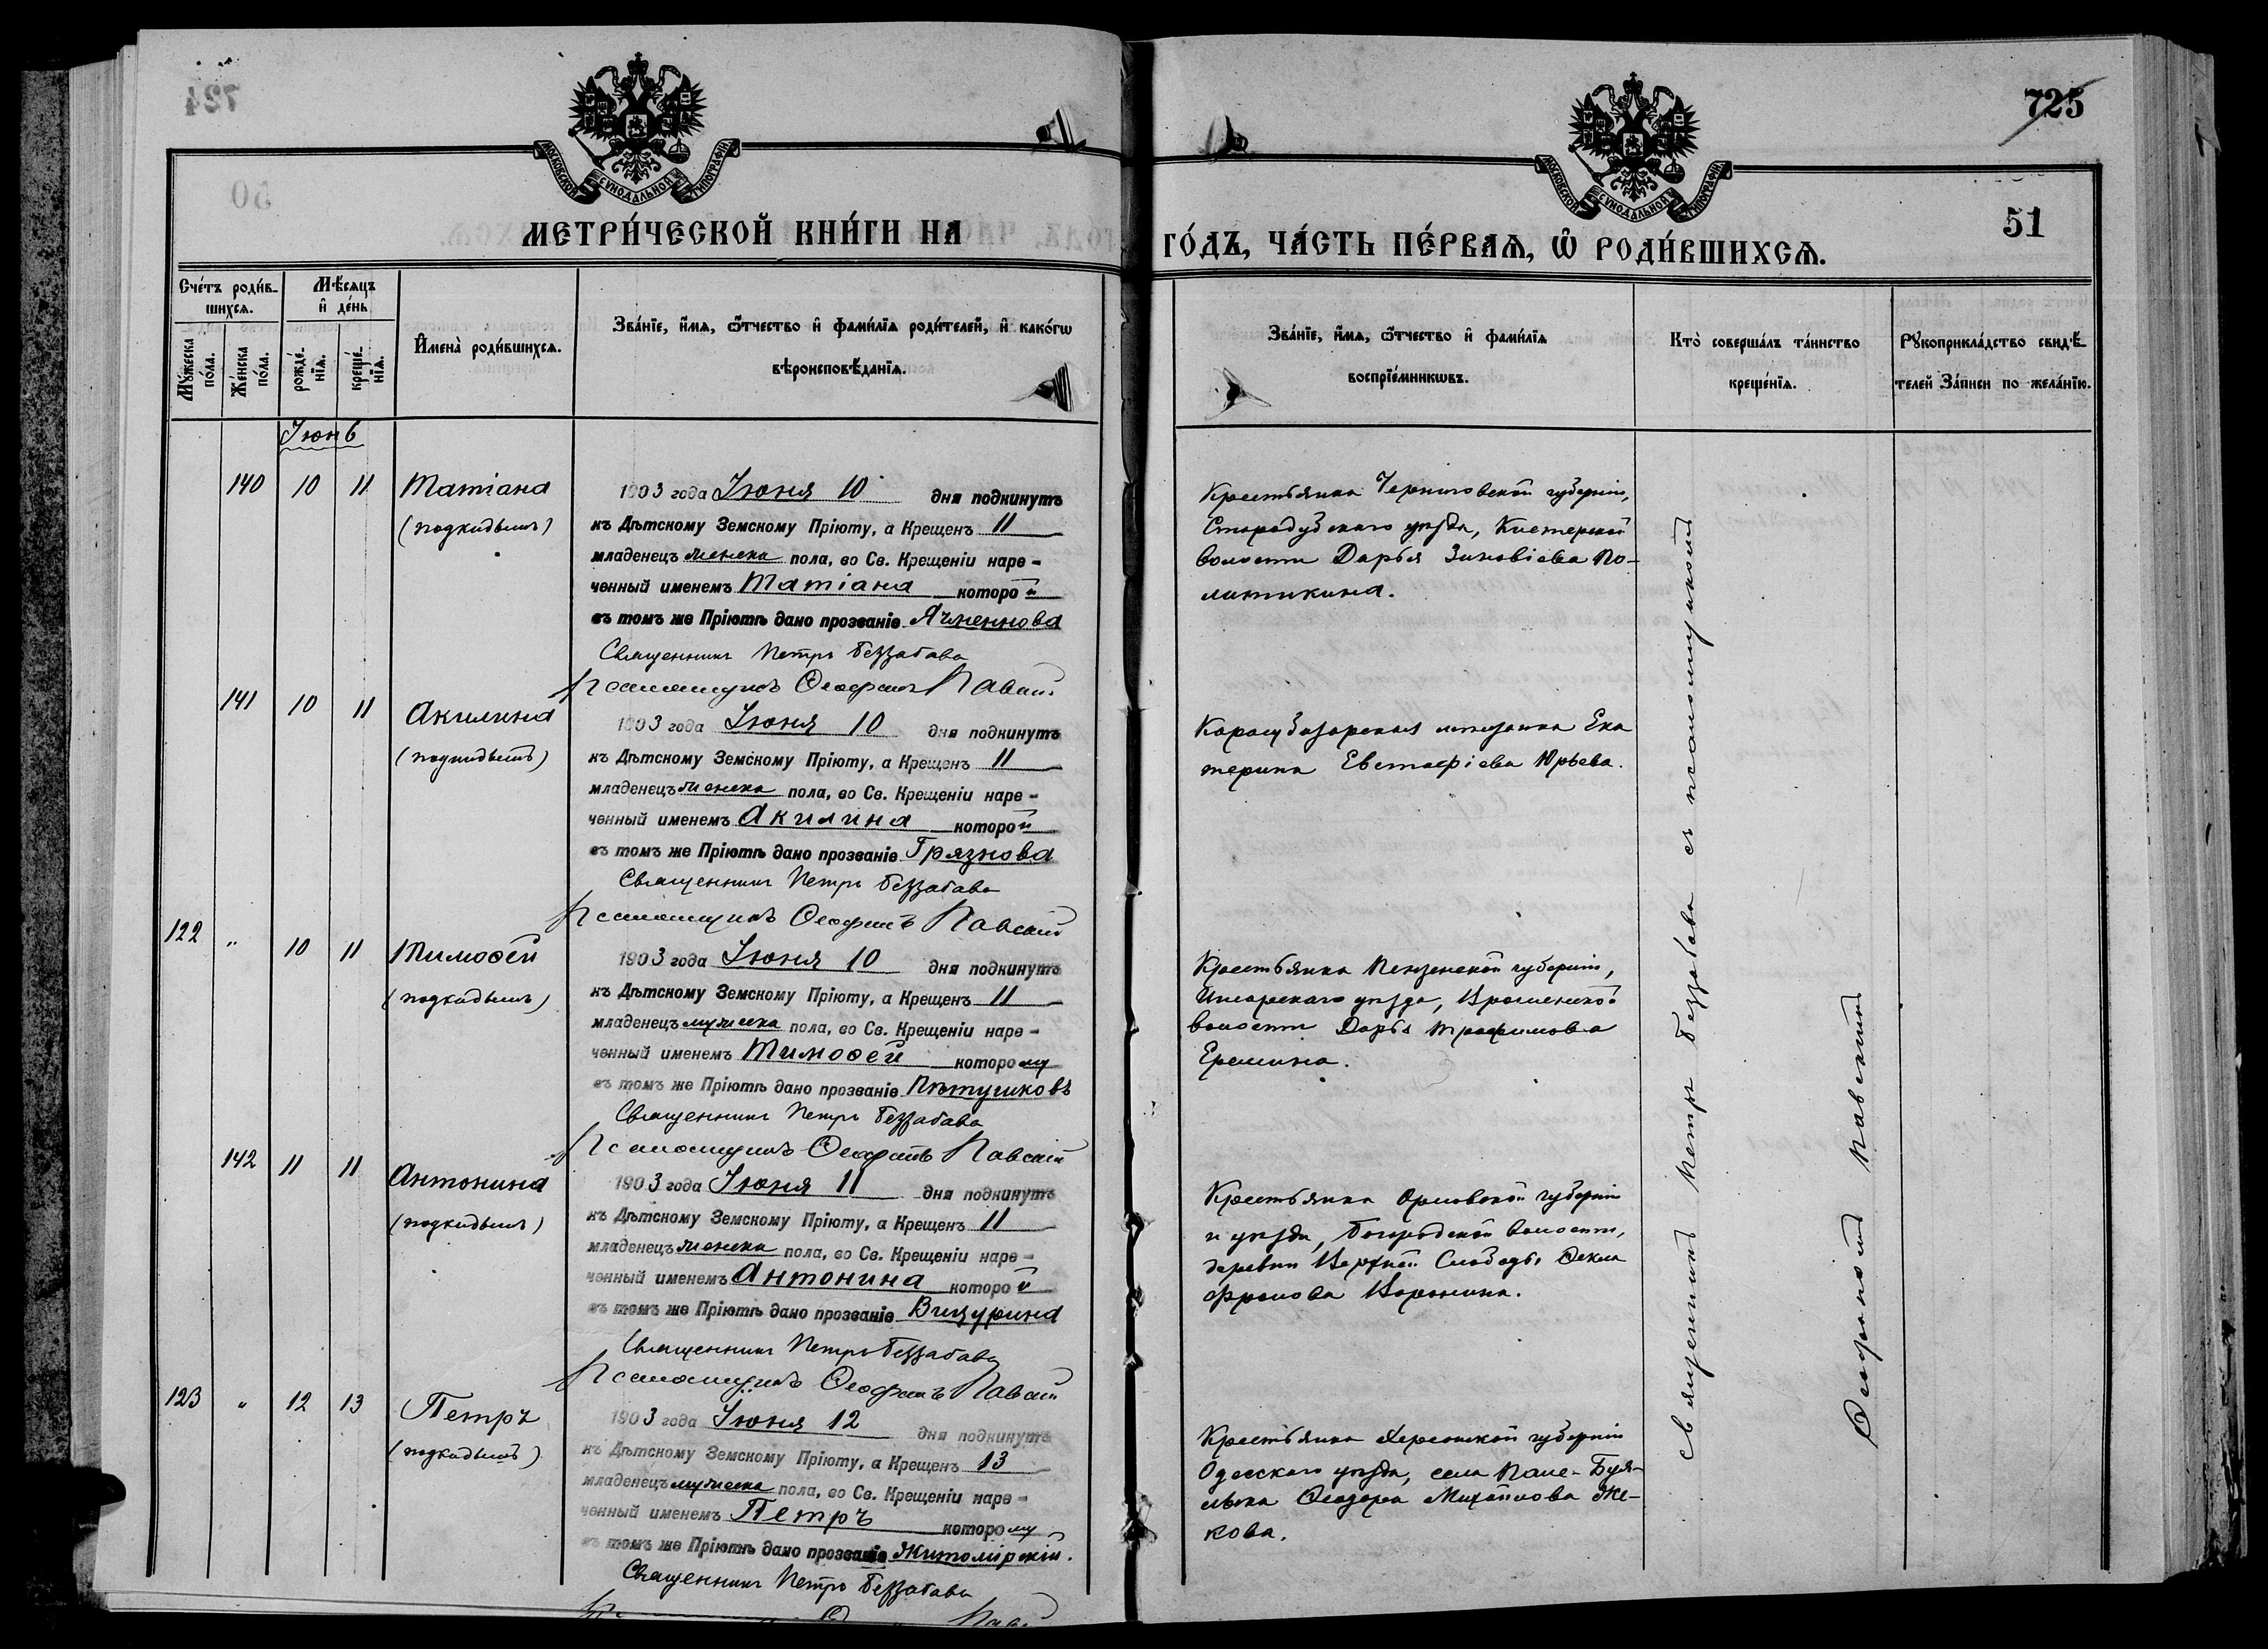 724
725
50
51
МОСКОВСКОЙ СУНОДАЛЬНОЙ ТИПОГРАФІИ
МОСКОВСКОЙ СУНОДАЛЬНОЙ ТИПОГРАФІИ
МЕТРИ́ЧЕСКОЙ КНИ́ГИ НА
ГО́ДЪ, ЧА́СТЬ ПЕ́РВАѦ, Ѿ РОДИ́ВШИХСѦ.
Счéтъ роди́в-
шихсѧ.
Мꙋ́жеска
по́ла.
Же́нска
по́ла.
Мѣ́сѧцъ
и҆ де́нь
рожде́-
нїѧ.
креще́-
нїѧ.
И҆мена̀ роди́вшихсѧ.
Зва́нїе, и҆́мѧ, ѻ҆́тчество и҆ фами́лїѧ роди́телей, и҆ како́гѡ
вѣроисповѣ́данїѧ.
Зва́нїе, и҆́мѧ, ѻ҆́тчество и҆ фами́лїѧ
воспрїе́мникѡвъ.
Кто̀ соверша́лъ та́инство
креще́нїѧ.
Рꙋкоприкла́дство свидѣ́-
телей за́писи по жела́нїю.
Іюнь
140 10 11 Татіана
(подкидышъ)
1903 года Іюня 10 дня подкинутъ
къ Дѣтскому Земскому Пріюту, а Крещенъ 11
младенецъ женска пола, во Св. Крещеніи наре-
ченный именемъ Татіана которой
въ томъ же Пріютѣ дано прозваніе Ячменнова
Священникъ Петръ Беззабава
Псаломщикъ Ѳеофанъ Павскій
Крестьянка Черниговской губерніи,
Стародубскаго уѣзда, Кистерской
волости Дарья Зиновіева По-
литикина.
141 10 11 Акилина
(подкидышъ)
1903 года Іюня 10 дня подкинутъ
къ Дѣтскому Земскому Пріюту, а Крещенъ 11
младенецъ женска пола, во Св. Крещеніи наре-
ченный именемъ Акилина которой
въ томъ же Пріютѣ дано прозваніе Грязнова
Священникъ Петръ Беззабава
Псаломщикъ Ѳеофанъ Павскій
Карасубазарская мѣщанка Ека
терина Евстафіева Юрьева.
122 " 10 11 Тимоѳей
(подкидышъ)
1903 года Іюня 10 дня подкинутъ
къ Дѣтскому Земскому Пріюту, а Крещенъ 11
младенецъ мужеска пола, во Св. Крещеніи наре-
ченный именемъ Тимоѳей которому
въ томъ же Пріютѣ дано прозваніе Пѣтушковъ
Священникъ Петръ Беззабава
Псаломщикъ Ѳеофанъ Павскій
Крестьянка Пензенской губерніи,
Инсарскаго уѣзда,
волости Дарья Трофимова
Еремина.
142 11 11 Антонина
(подкидышъ)
1903 года Іюня 11 дня подкинутъ
къ Дѣтскому Земскому Пріюту, а Крещенъ 11
младенецъ женска пола, во Св. Крещеніи наре-
ченный именемъ Антонина которой
въ томъ же Пріютѣ дано прозваніе Вицурина
Священникъ Петръ Беззабава
Псаломщикъ Ѳеофанъ Павскій
Крестьянка Орловской губерніи
и уѣзда, волости,
деревни Слободы Ѳекла
Фролова Воронина.
123 " 12 13 Петръ
(подкидышъ)
1903 года Іюня 12 дня подкинутъ
къ Дѣтскому Земскому Пріюту, а Крещенъ 13
младенецъ мужеска пола, во Св. Крещеніи наре-
ченный именемъ Петръ которому
въ томъ же Пріютѣ дано прозваніе Житомірскій.
Священникъ Петръ Беззабава
Крестьянка Херсонской губерніи
Одесскаго уѣзда, села
Ѳеодора Михайлова Же-
кова.
Священникъ Петръ Беззабава съ псаломщикомъ
Ѳеофаномъ Павскимъ